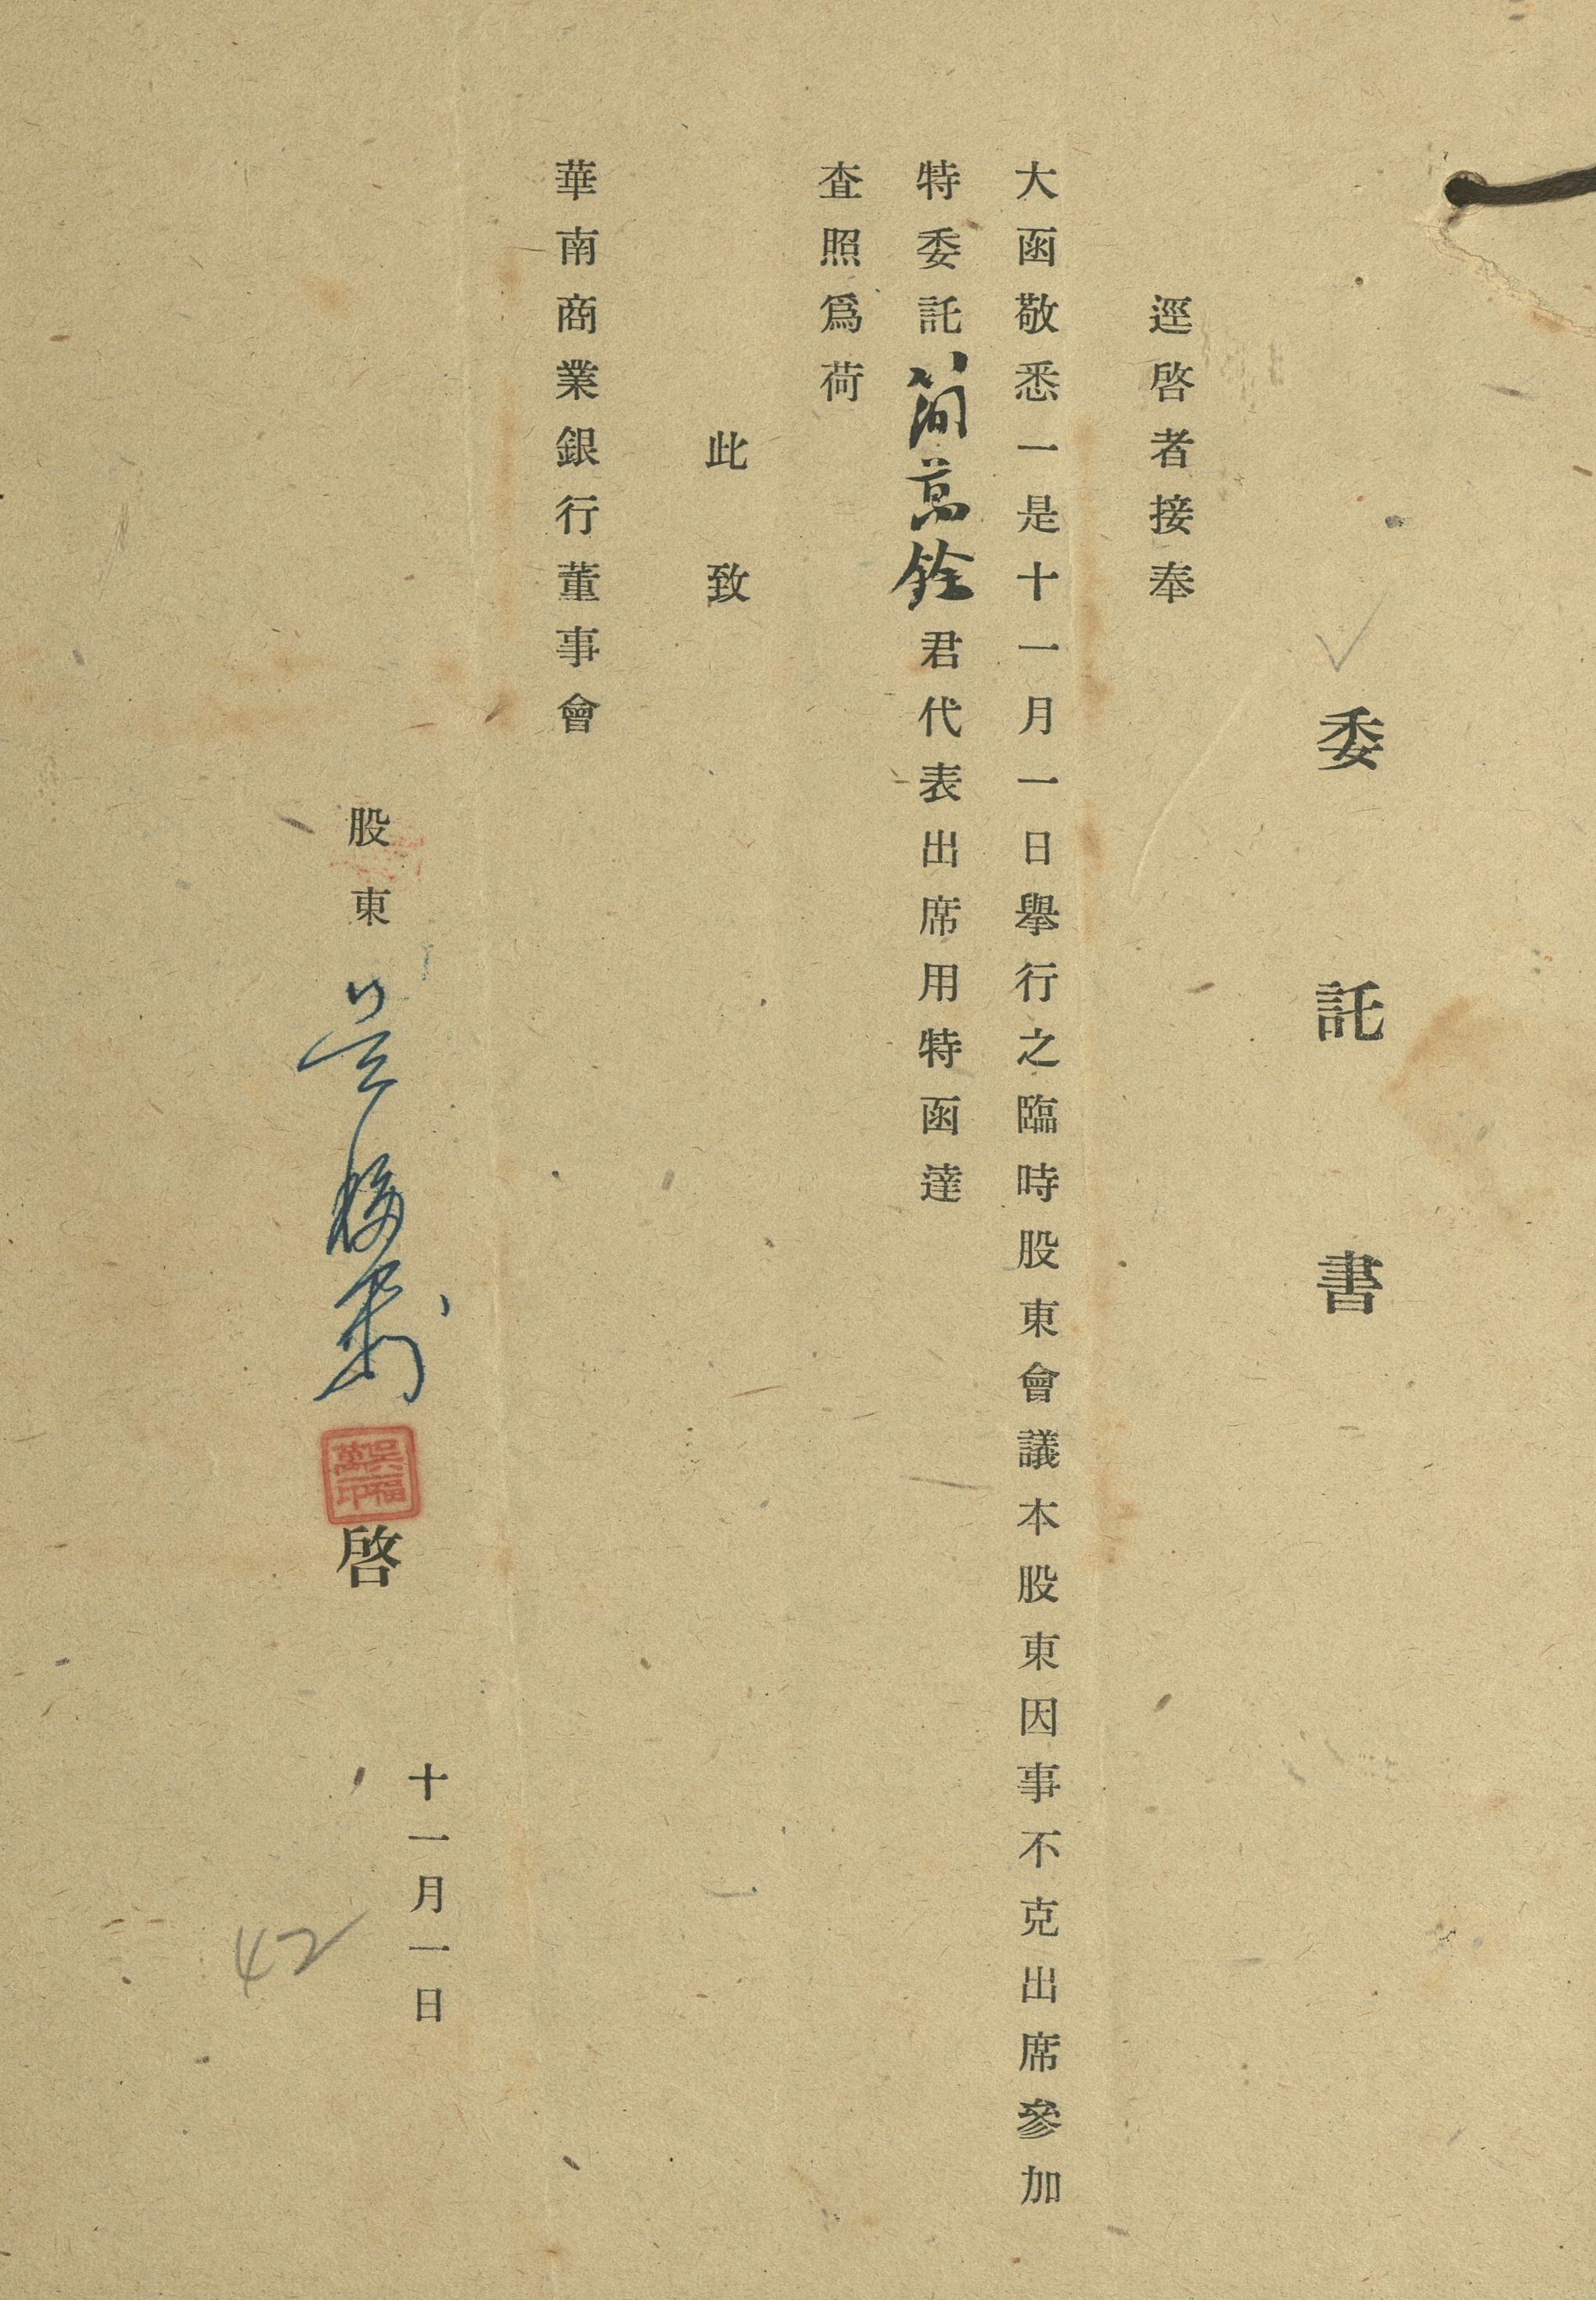 委託書
逕啓者接奉
大函敬悉一是十一月一日舉行之臨時股東會議本股東因事不克出席參加
特委託簡萬銓君代表出席用特函達
査照爲荷
此致
華南商業銀行董事會
十一月一日
股東 吳福萬 啓
吳福萬印
42